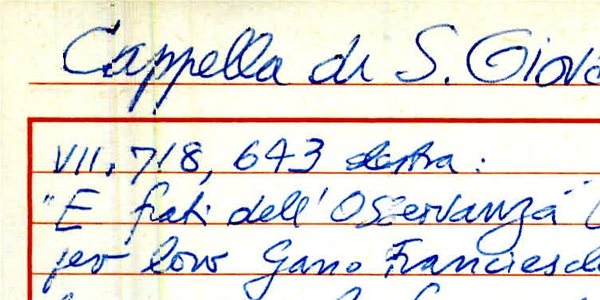 Cappella di S. Giova
VII. 718, 643 destra:
"E frati dell'Osservanza" (
per loro Gano Franciesch